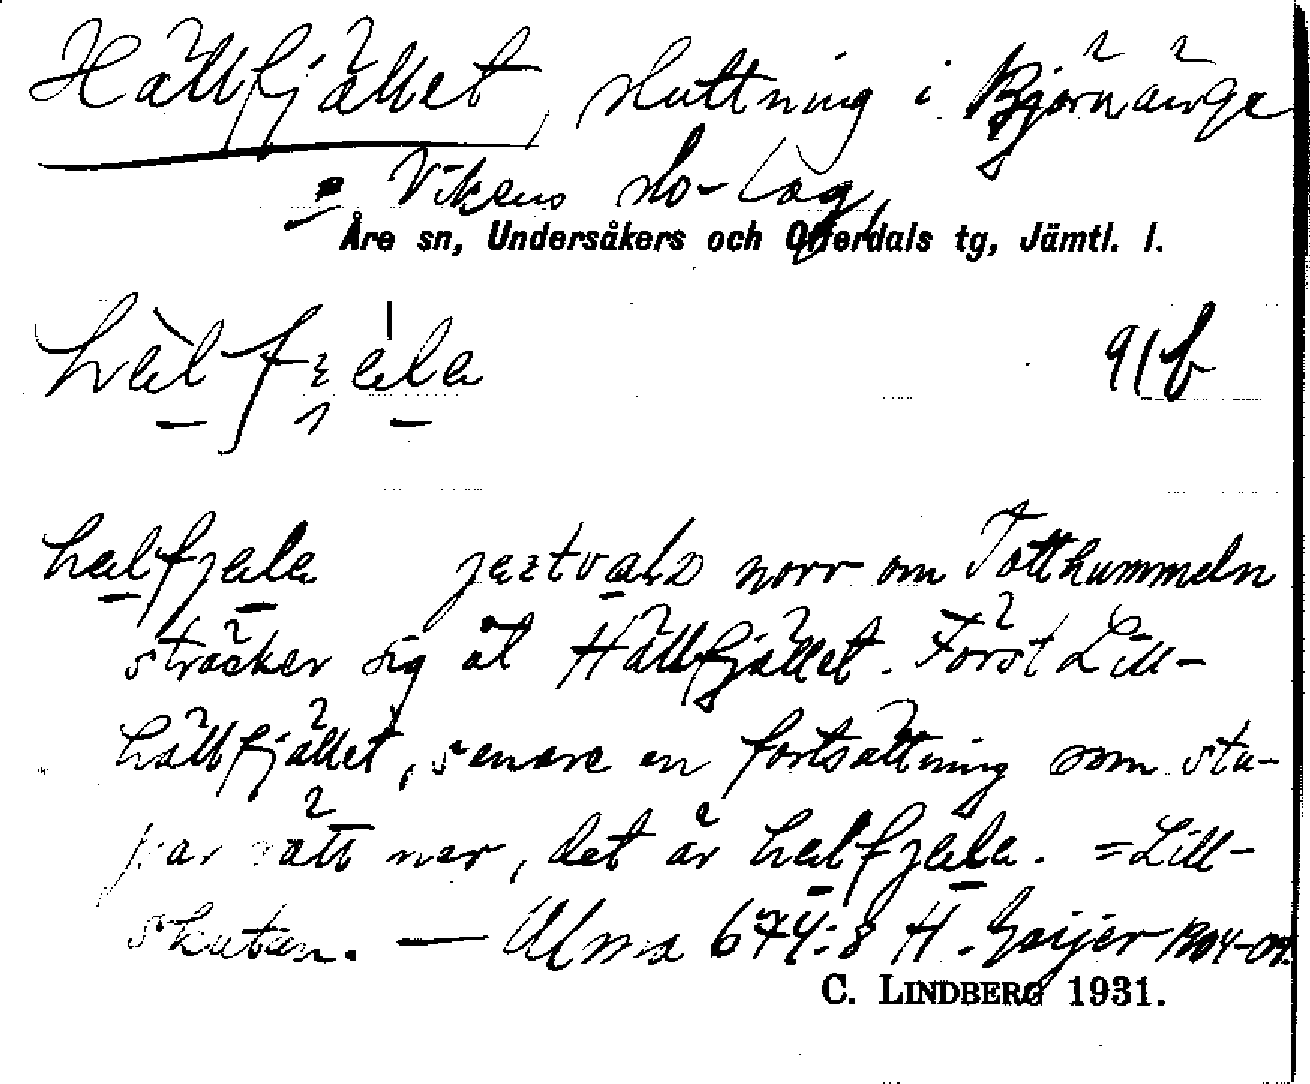 Hällfjället, sluttning i Björnänge
= Vikens sko-lag,
Åre sn, Undersåkers och Offerdals tg, Jämtl. l.
91b
norr om Totthummeln
sträcker sig åt Hällfjället. Först Lill-
hällfjället, senare en fortsättning som stu-
par rätt ner, det är halfjala. = Lill-
skutan. — Ulma 674:8 H. Geijer 1904-07.
C. LINDBERG 1931.